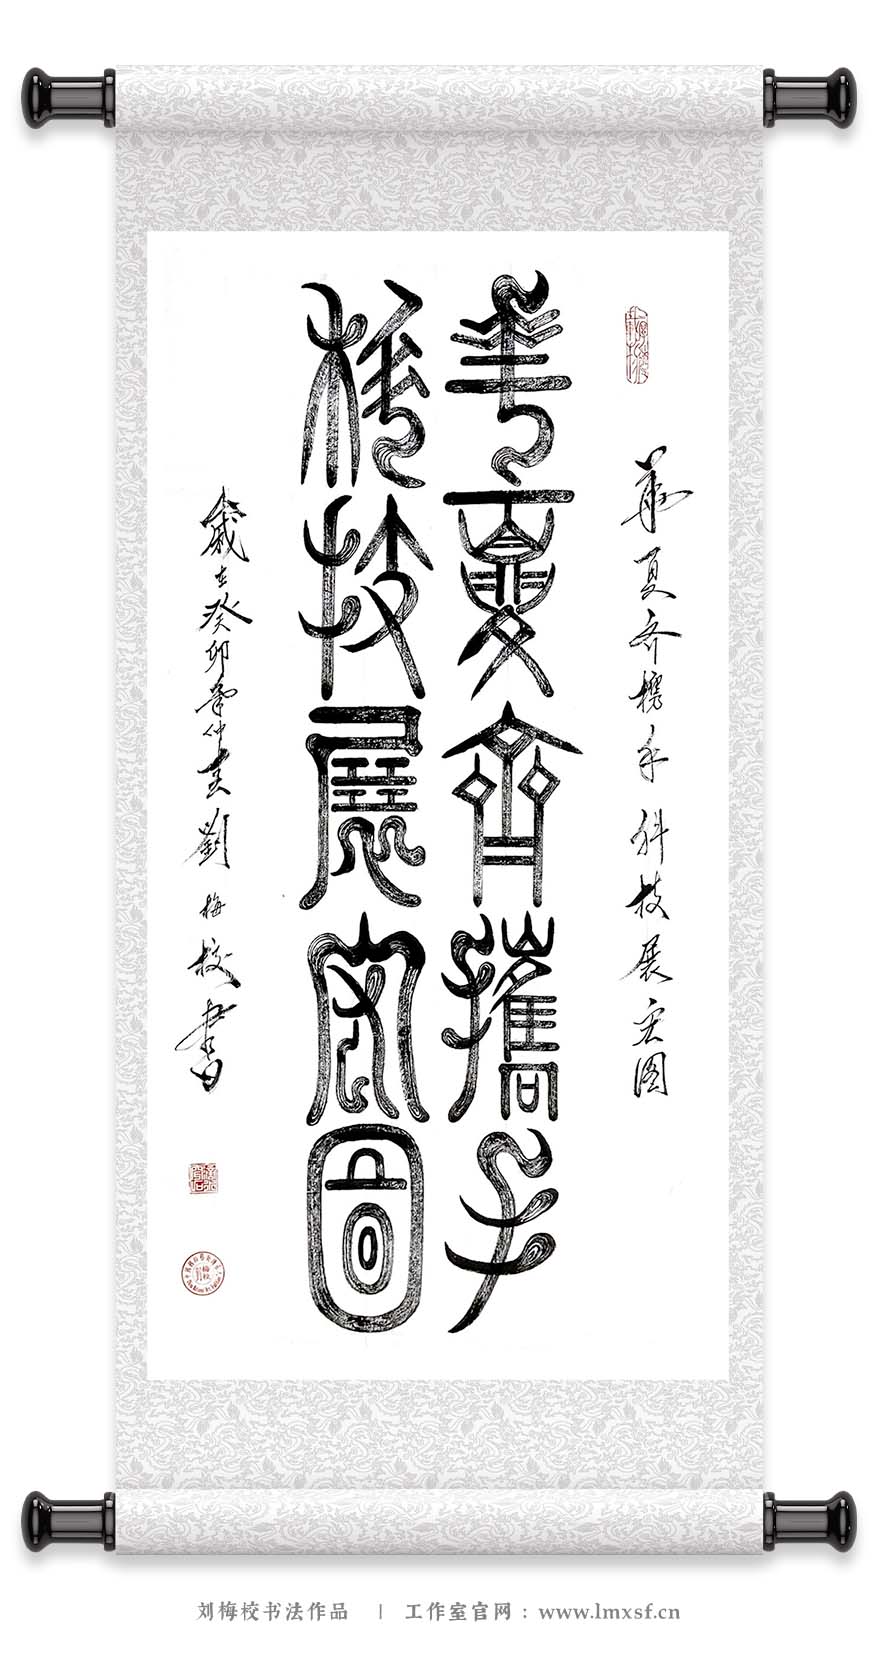 華夏齊攜手
科技展宏圖
華夏齐携手科技展宏图
歲在癸卯年仲春劉梅校書
刘梅校书法作品 | 工作室官网：www.lmxsf.cn